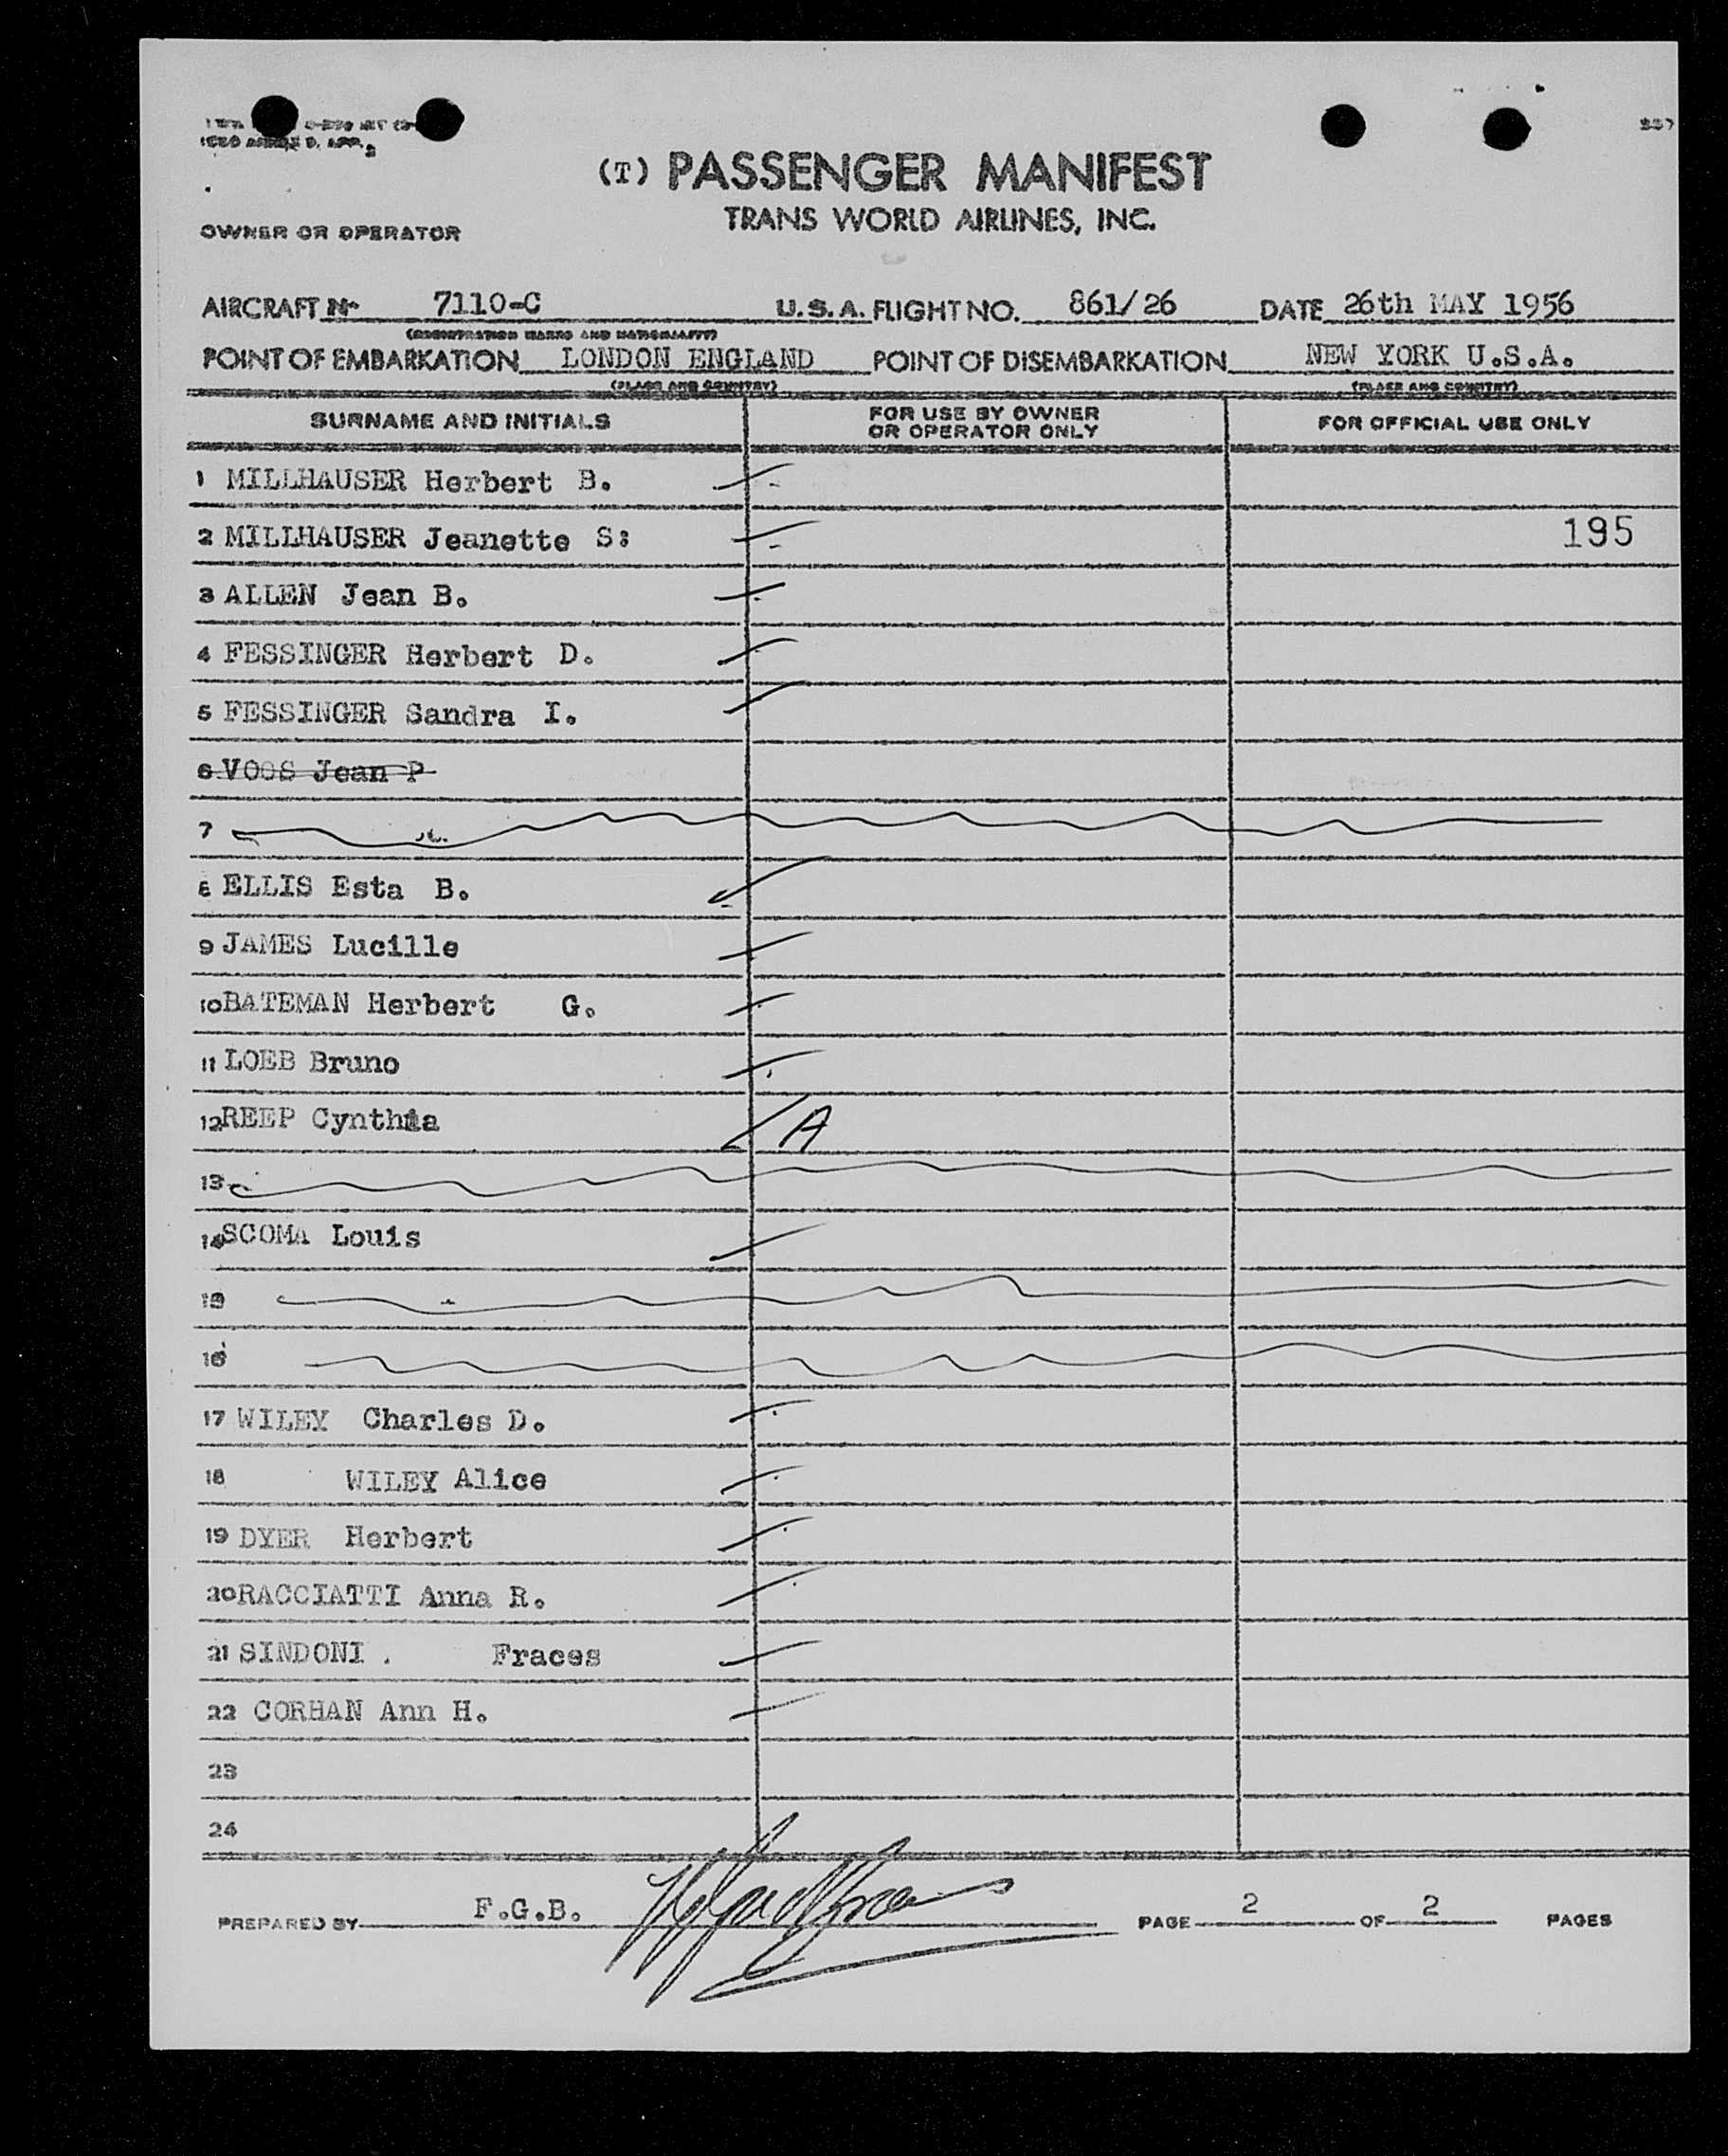 (T) PASSENGER MANIFEST
TRANS WORLD AIRLINES, INC.
OWNER OR OPERATOR
AIRCRAFT N- 7110-C U.S.A. FLIGHT NO. 861/26 DATE 26th MAY 1956
(REGISTRATION MARKS AND NATIONALITY)
POINT OF EMBARKATION LONDON ENGLAND POINT OF DISEMBARKATION NEW YORK U.S.A.
(PLACE AND COUNTRY) (PLACE AND COUNTRY)
SURNAME AND INITIALS FOR USE BY OWNER OR OPERATOR ONLY FOR OFFICIAL USE ONLY
1 MILLHAUSER Herbert B.
2 MILLHAUSER Jeanette S: 195
3 ALLEN Jean B.
4 FESSINGER Herbert D.
5 FESSINGER Sandra I.
6 VOOS Jean P
7
8 ELLIS Esta B.
9 JAMES Lucille
10 BATEMAN Herbert G.
11 LOEB Bruno
12 REEP Cynthia A
13
14 SCOMA Louis
15
16
17 WILEY Charles D.
18 WILEY Alice
19 DYER Herbert
20 RACCIATTI Anna R.
21 SINDONI . Fraces
22 CORHAN Ann H.
23
24
PREPARED BY F.G.B. PAGE 2 OF 2 PAGES